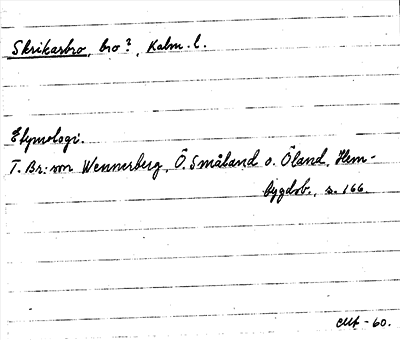 Skrikarbro, bro?, Kalm. l.
Etymologi.
T. Br: von Wennerberg, Ö. Småland o. Öland, Hem-
bygdsb., s. 166.
-60.